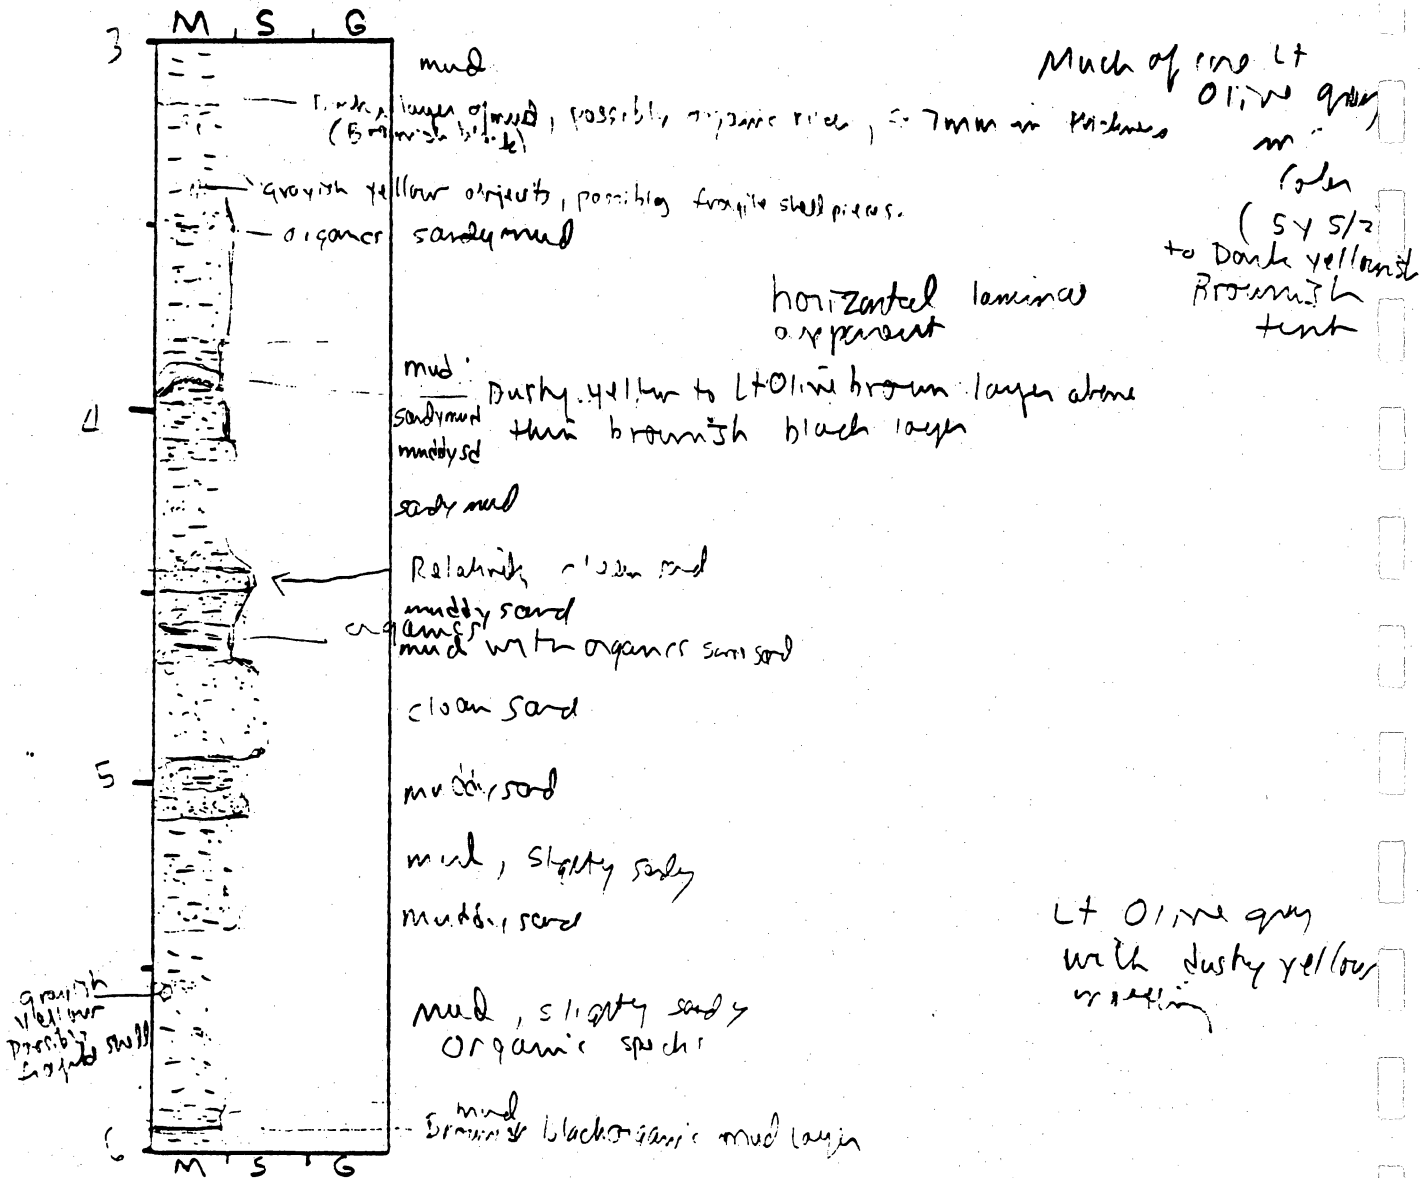 M S G
3
mud
Much of core Lt
Olive gray
in
Color
(5Y 5/2
to Dark yellowish
Brownish
tint
layer of mud, possibly organic rich, 7mm in thickness
(Brownish black)
grayish yellow objects, possibly fragile shell pieces.
organics sandy mud
horizontal laminae
apparent
mud
Dusky yellow to Lt Olive brown layer above
thin brownish black layer
4
sandy mud
muddy sd
sandy mud
Relatively clean sand
muddy sand
organics
mud with organics sand
clean sand
5
muddy sand
mud, slighty sandy
muddy sand
Lt Olive gray
with dusky yellow
mottling
grayish
yellow
possible
shell
mud, slighty sandy
organic specks
mud
Brownish black organic mud layer
6
M S G